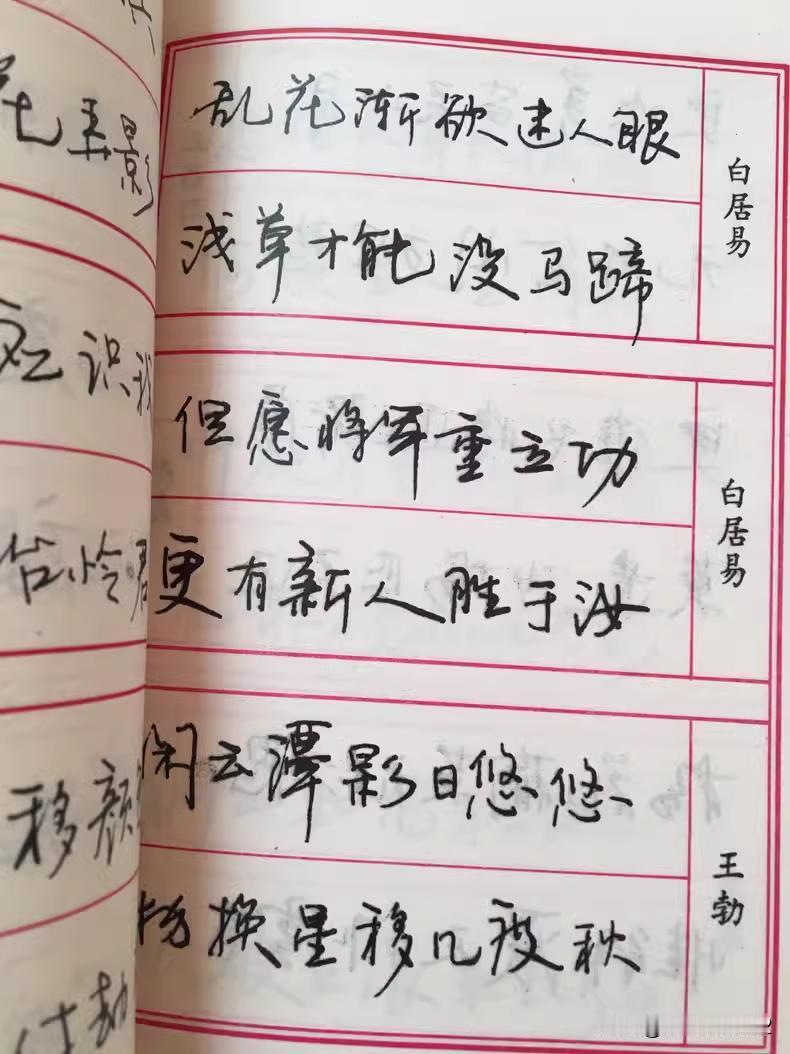 乱花渐欲迷人眼
浅草才能没马蹄
白居易
但愿将军重立功
更有新人胜于汝
白居易
闲云潭影日悠悠
物换星移几度秋
王勃
花弄影
识我
怜君
移颜